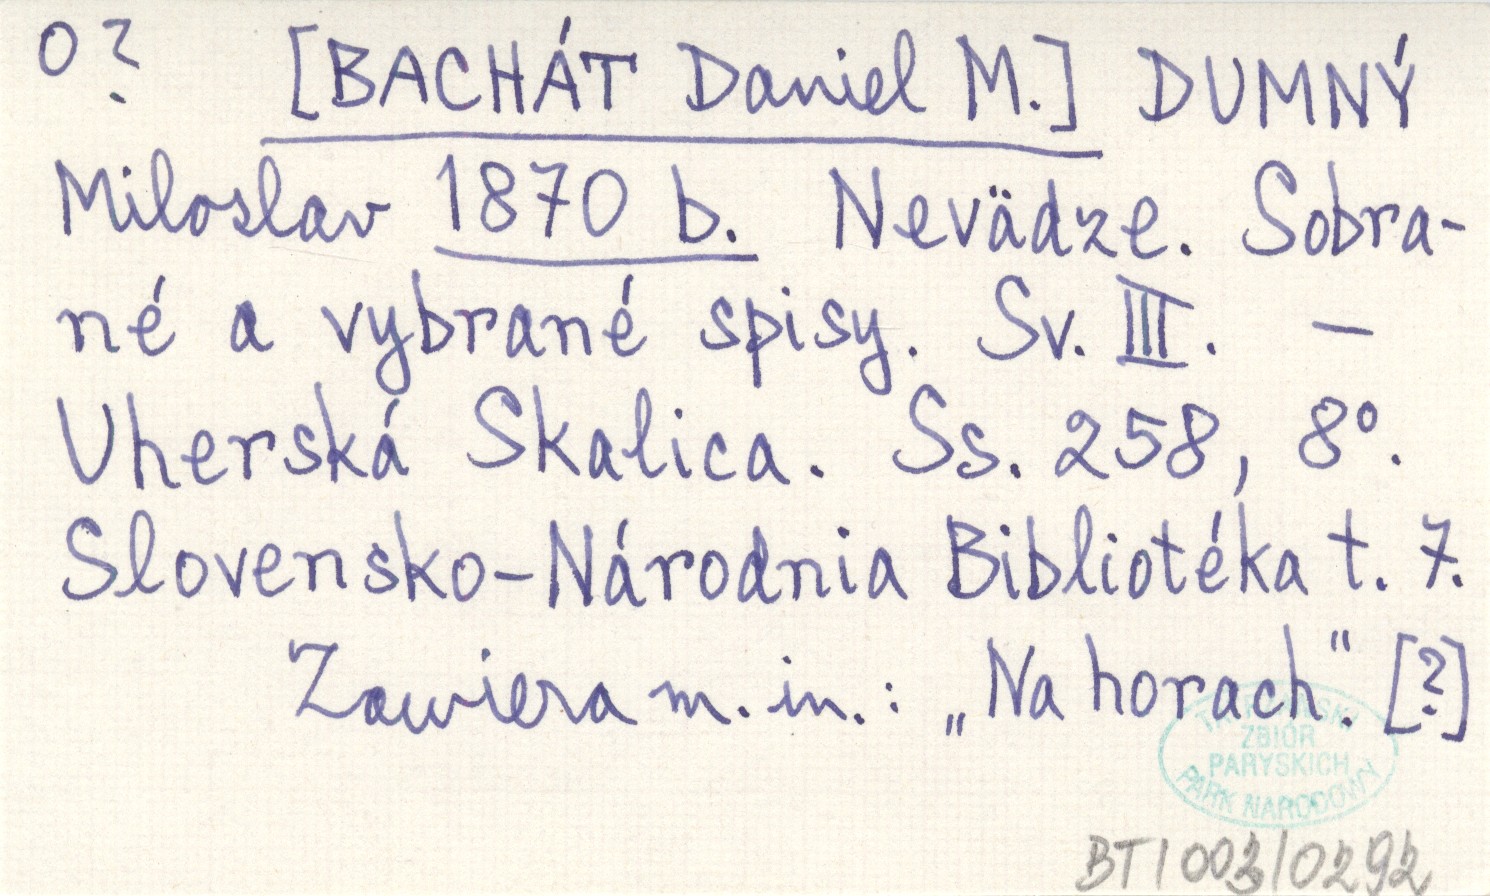 O? [BACHÁT Daniel M.] DUMNÝ
Miloslav 1870 b. Nevädze. Sobra-
né a vybrané spisy. Sv. III. —
Uherská Skalica. Ss. 258, 8°.
Slovensko-Národnia Bibliotéka t. 7.
Zawiera m. in.: „Na horach". [?]
TATRZAŃSKI
ZBIÓR
PARYSKICH
PARK NARODOWY
BT/003/0292